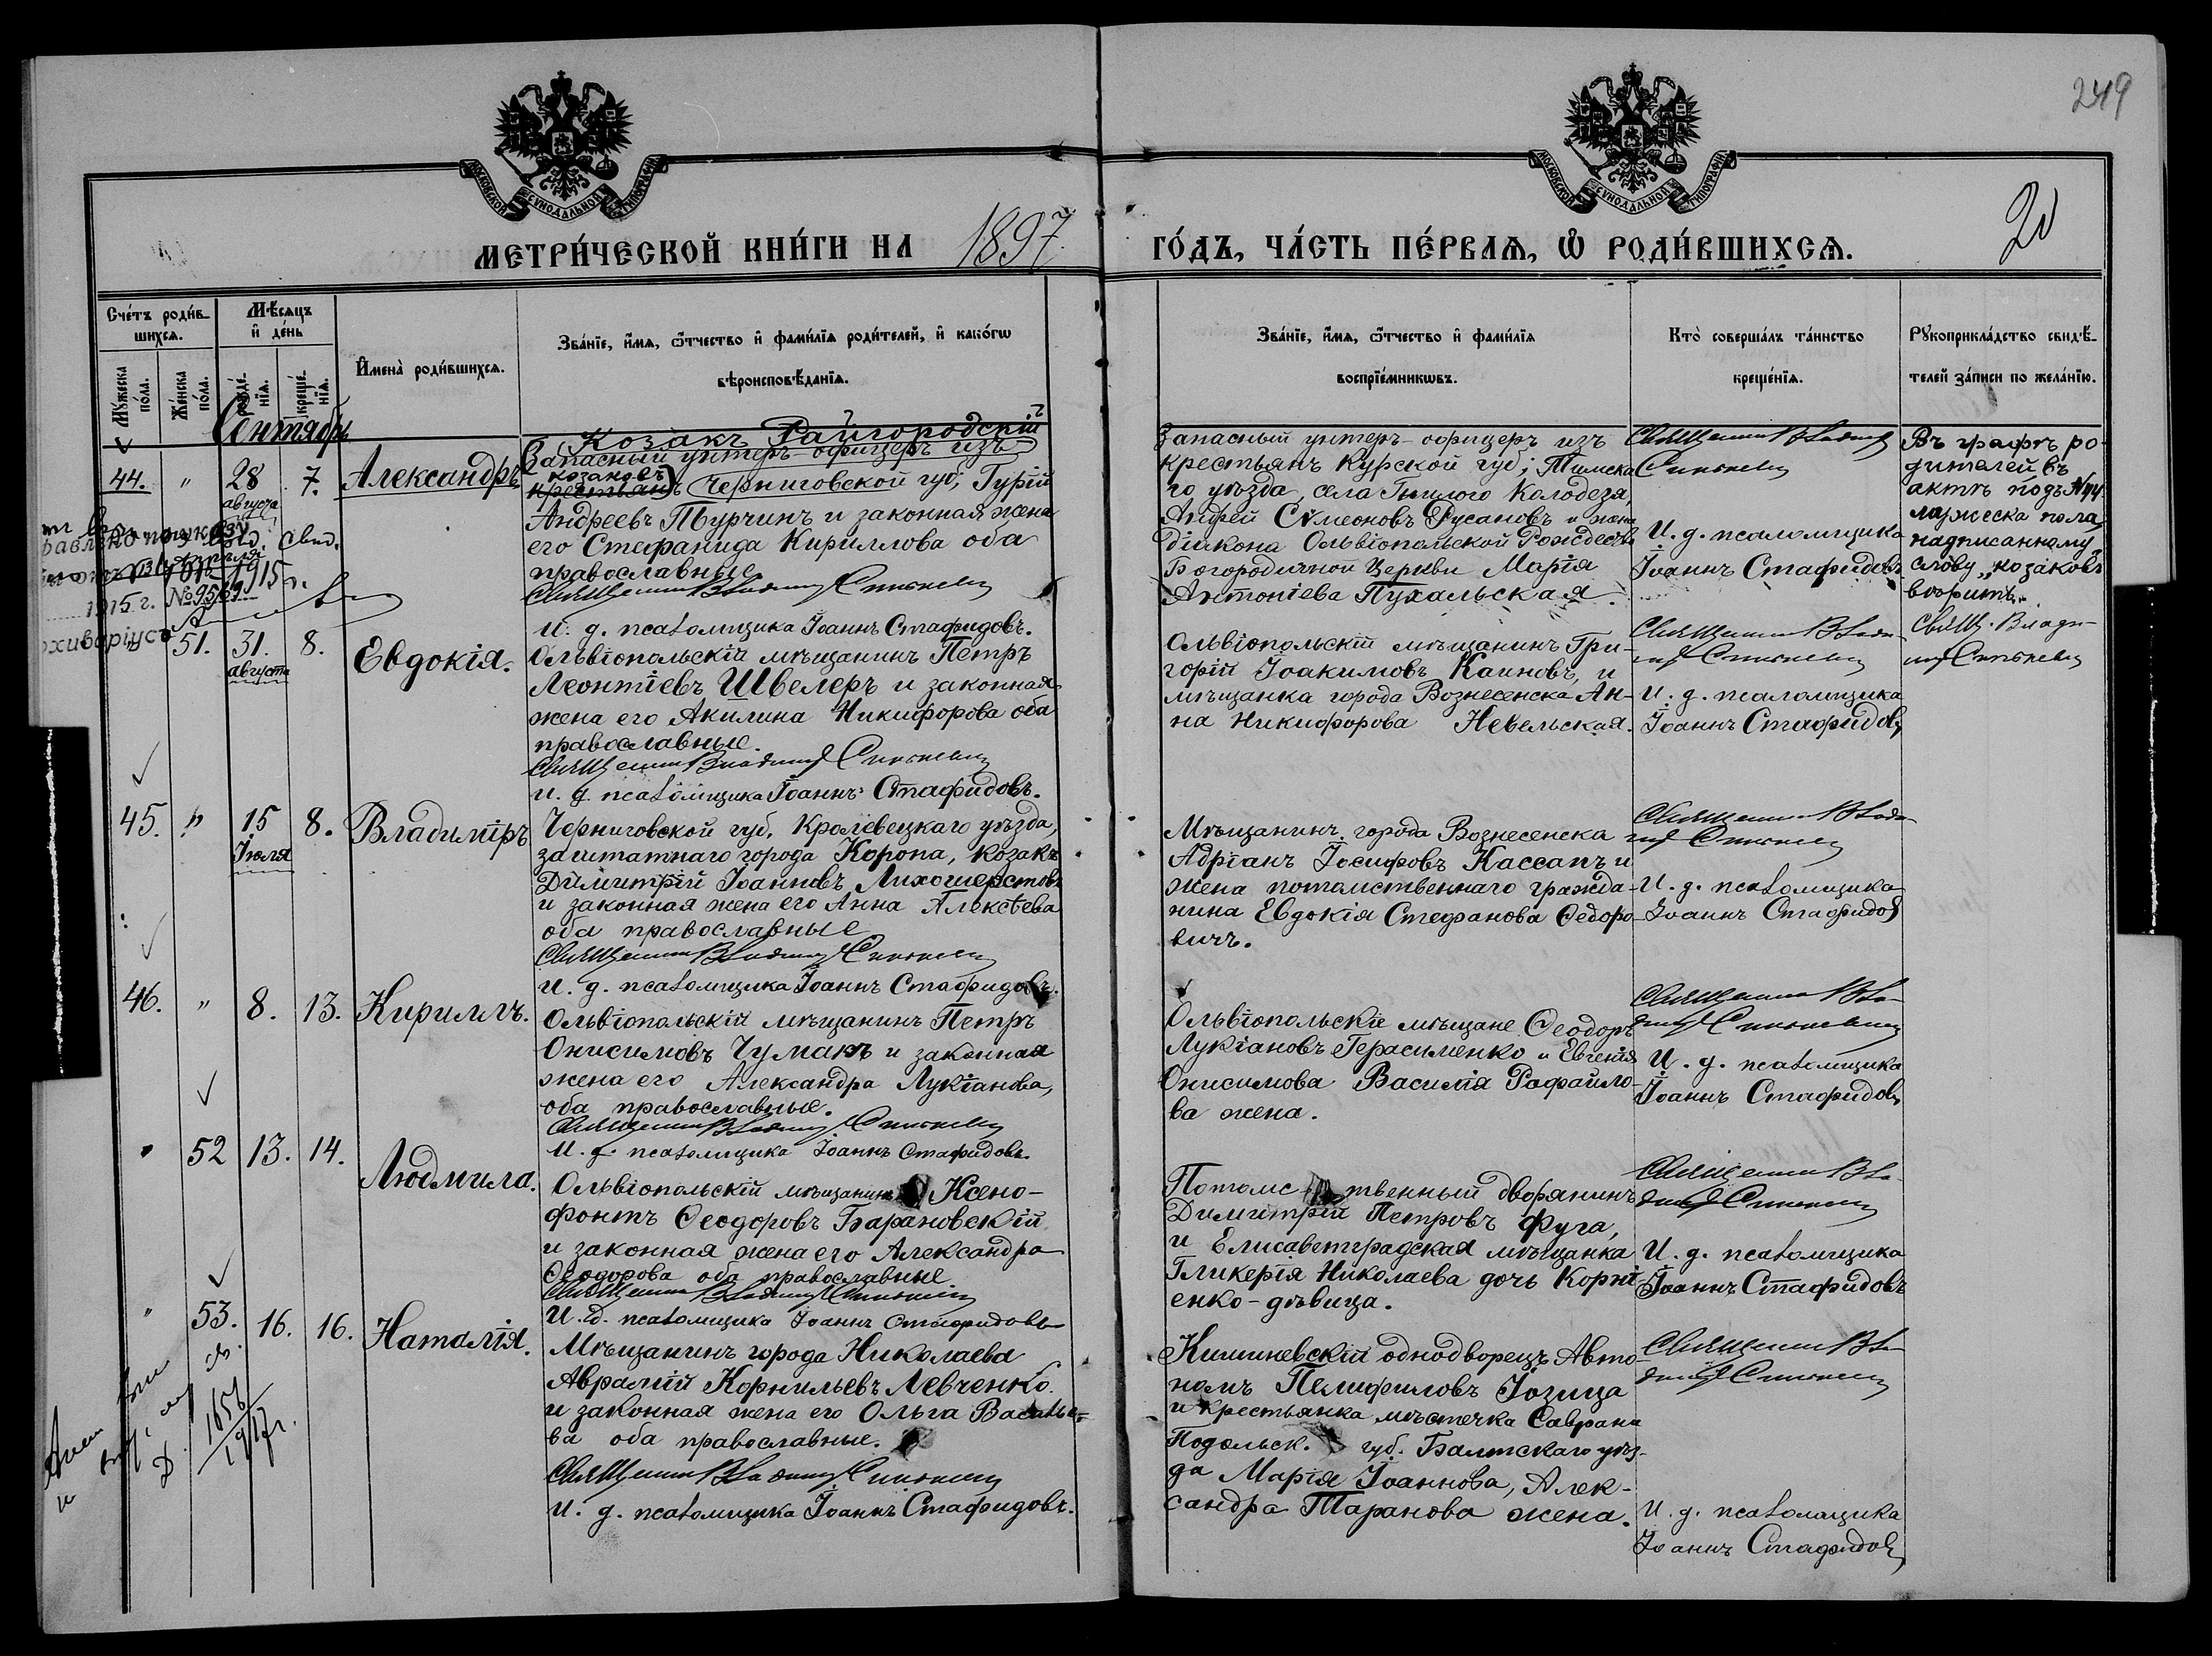 249
20
МОСКОВСКОЙ СѴНОДАЛЬНОЙ ТИПОГРАФІИ
МОСКОВСКОЙ СѴНОДАЛЬНОЙ ТИПОГРАФІИ
МЕТРИ́ЧЕСКОЙ КНИ́ГИ НА 1897
ГО́ДЪ, ЧА́СТЬ ПЕ́РВАѦ, Ѽ РОДИ́ВШИХСѦ.
Сче́тъ роди́в-
шихсѧ.
Мѣ́сѧцъ
и҆ де́нь
Му́жеска
по́ла.
Же́нска
по́ла.
рожде́-
нїѧ.
креще́-
нїѧ.
И҆мена̀ роди́вшихсѧ.
Зва́нїе, и҆́мѧ, ѻ҆́тчество и҆ фами́лїѧ роди́телей, и҆ како́гѡ
вѣроисповѣ́данїѧ.
Зва́нїе, и҆́мѧ, ѻ҆́тчество и҆ фами́лїѧ
воспрїе́мникѡвъ.
Кто̀ соверша́лъ та́инство
креще́нїѧ.
Рꙋкоприкла́дство свидѣ́-
телей за́писи по жела́нїю.
Сентябрь
44. " 28 августа 7. Александръ
Козакъ Райгородскій
Запасный унтеръ-офицеръ изъ
козаковъ
крестьянъ Черниговской губ, Гурій
Андреевъ Турчинъ и законная жена
его Стефанида Кириллова оба
православные
Священникъ Владимір
И. д. псаломщика Іоаннъ Стафидовъ.
Запасный унтеръ-офицеръ изъ
крестьянъ Курской губ; Тимска
го уѣзда, села Гнилого Колодезя,
Андрей Сѵмеоновъ Русановъ и жена
діакона Ольвіопольской Рождество
Богородичной Церкви Марія
Антоніева Пухальская.
Священникъ Владимір
И. д. псаломщика
Іоаннъ Стафидовъ
Въ графѣ ро-
дителей въ
актѣ подъ № 44
мужеска пола
надписанному
слову „козаковъ"
вѣрить.
Свящ. Влади-
мір
свид.
1915 г.
1915 г. № 9569
архиваріусъ
51. 31. августа 8. Евдокія.
Ольвіопольскій мѣщанинъ Петръ
Леонтіевъ Швелеръ и законная
жена его Акилина Никифорова оба
православные.
Священникъ Владимір
И. д. псаломщика Іоаннъ Стафидовъ.
Ольвіопольскій мѣщанинъ Гри-
горій Іоакимовъ Каиновъ, и
мѣщанка города Вознесенска Ан-
на Никифорова Невельская.
Священникъ Влади-
мір
И. д. псаломщика
Іоаннъ Стафидовъ
45. " 15 Іюля 8. Владиміръ
Черниговской губ, Кролевецкаго уѣзда,
заштатнаго города Коропа, козакъ
Димитрій Іоанновъ Лихошерстовъ
и законная жена его Анна Алексѣева
оба православные
Священникъ Владимір
И. д. псаломщика Іоаннъ Стафидовъ.
Мѣщанинъ города Вознесенска
Адріанъ Іосифовъ Кассапъ и
жена потомственнаго гражда-
нина Евдокія Стефанова Ѳедоро-
вичъ.
Священникъ Влади-
мір
И. д. псаломщика
Іоаннъ Стафидовъ
46. " 8. 13. Кириллъ.
Ольвіопольскій мѣщанинъ Петръ
Онисимовъ Чумакъ и законная
жена его Александра Лукіанова,
оба православные.
Священникъ Владимір
И. д. псаломщика Іоаннъ Стафидовъ.
Ольвіопольскіе мѣщане Ѳеодоръ
Лукіановъ Герасименко и Евгенія
Онисимова Василія Рафаило-
ва жена.
Священникъ Вла-
димір
И. д. псаломщика
Іоаннъ Стафидовъ
" 52 13. 14. Людмила.
Ольвіопольскій мѣщанинъ Ксено-
фонтъ Ѳеодоровъ Барановскій
и законная жена его Александра
Ѳеодорова оба православные.
Священникъ Владимір
И. д. псаломщика Іоаннъ Стафидовъ
Потомс-твенный дворянинъ
Димитрій Петровъ Фуга,
и Елисаветградская мѣщанка
Гликерія Николаева дочь Корні-
енко-дѣвица.
Священникъ Вла-
димір
И. д. псаломщика
Іоаннъ Стафидовъ
" 53. 16. 16. Наталія.
Мѣщанинъ города Николаева
Аврамій Корнильевъ Левченко
и законная жена его Ольга Василье-
ва оба православные.
Священникъ Владимір
И. д. псаломщика Іоаннъ Стафидовъ.
Кишиневскій однодворецъ Авто-
номъ Памфиловъ Іозица
и крестьянка мѣстечка Саврани
Подольск. губ. Балтскаго уѣз-
да Марія Іоаннова, Алек-
сандра Таранова жена.
Священникъ Вла-
димір
И. д. псаломщика
Іоаннъ Стафидовъ
1917 г.